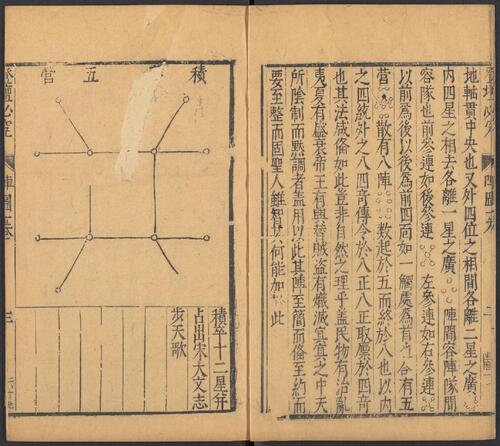 地軸貫中央也又外四位之相間各離二星之廣
內四星之相去各離一星之廣 陣間容陣隊間
容隊也前參連如後參連 左參連如右參連
以前爲後以後爲前四面如一觸處爲首 合有五
營 散有八陣 數起於五而終於八也以內
之四統外之八四奇傳令於八正八正取麾於四奇
也其法咸偹如此豈非自然之理乎盖民物有治亂
夷夏有盛衰帝王有興替賊盗有熾滅冥冥之中天
所陰制而黙調者盖用以此其陣至簡而偹至約而
要至整而固聖人雖智 何能加於此
積 五 營
積卒十二星并
占出宋天文志
步天歌
登壇必究
陣圖 卷
三